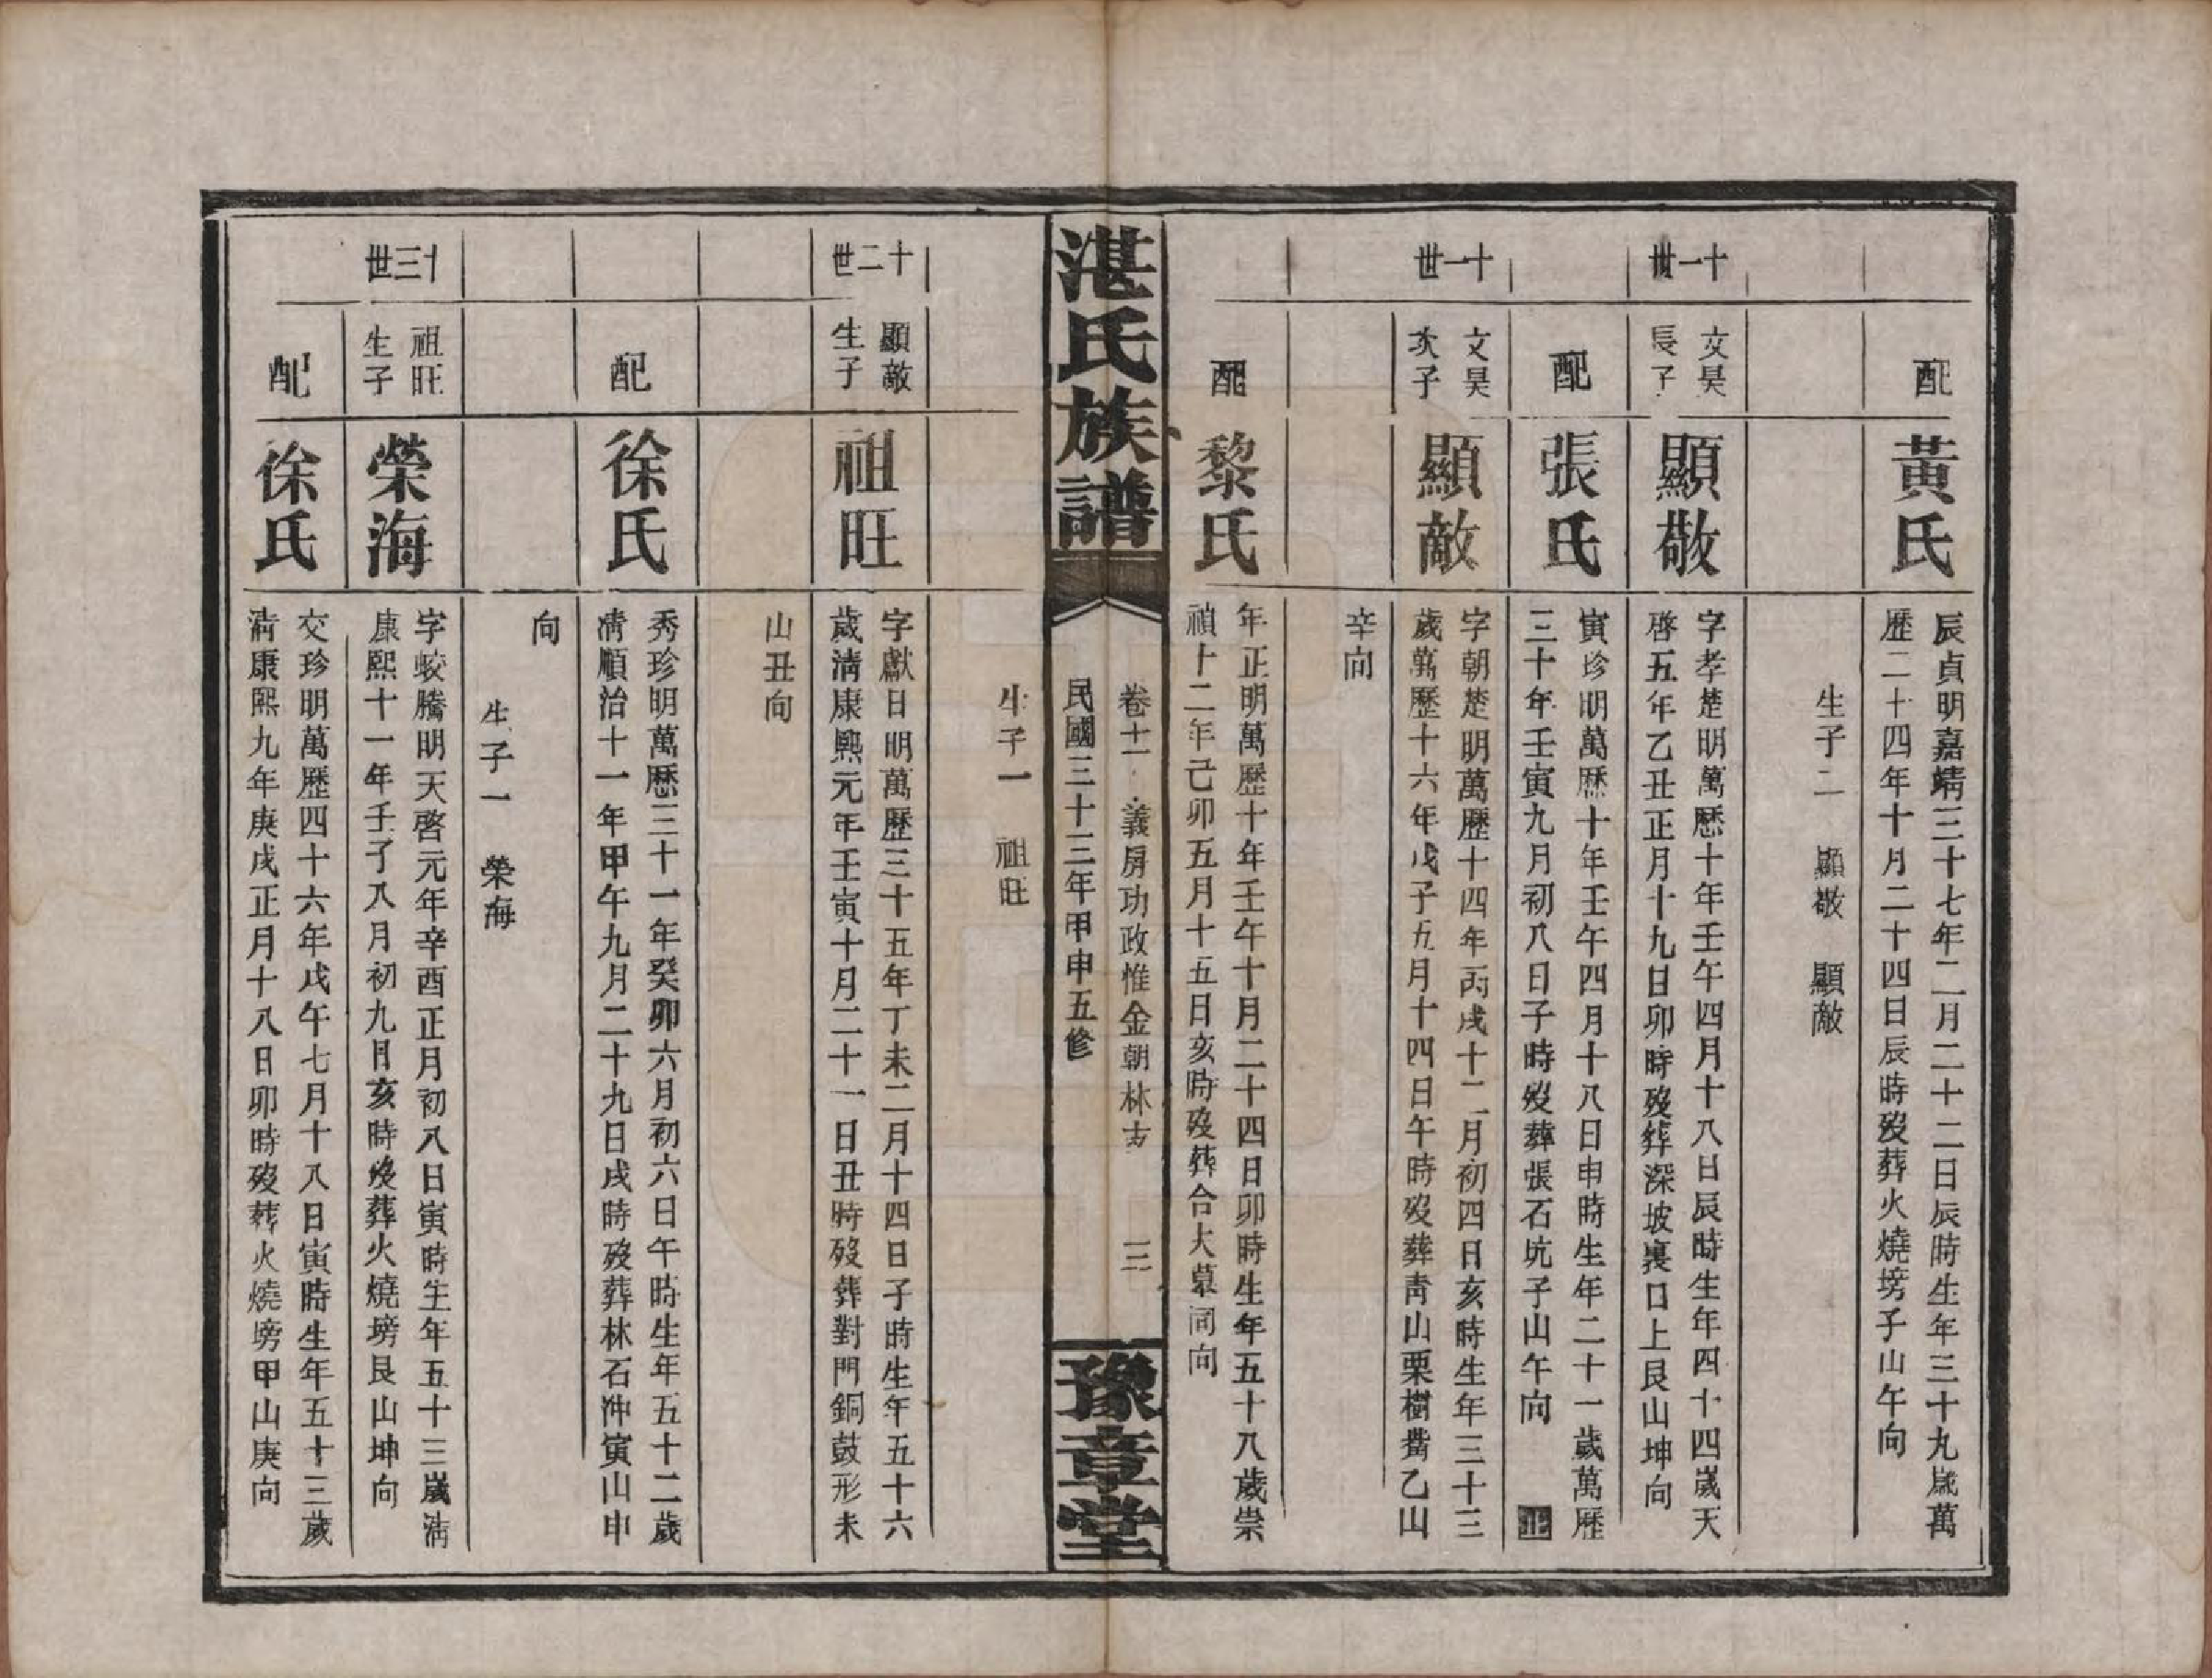 配
黃氏
辰貞明嘉靖三十七年二月二十二日辰時生年三十九歲萬
歷二十四年十月二十四日辰時歿葬火燒塝子山午向
生子二 顯敬 顯敵
十一世
文昊
長子
顯敬
字孝楚明萬歷十年壬午四月十八日辰時生年四十四歲天
啓五年乙丑正月十九日卯時歿葬深坡裏口上艮山坤向
配
張氏
寅珍明萬歷十年壬午四月十八日申時生年二十一歲萬歷
三十年壬寅九月初八日子時歿葬張石坑子山午向 止
十一世
文昊
次子
顯敵
字朝楚明萬歷十四年丙戌十二月初四日亥時生年三十三
歲萬歷十六年戊子五月十四日午時歿葬靑山栗樹乙山
辛向
配
黎氏
年正明萬歷十年壬午十月二十四日卯時生年五十八歲崇
禎十二年己卯五月十五日亥時歿葬合大墓同向
湛氏族譜
卷十一 義房功政惟金朝林支 三
民國三十三年甲申五修
豫章堂
生子一 祖旺
十二世
顯敵
生子
祖旺
字獻日明萬歷三十五年丁未二月十四日子時生年五十六
歲淸康熙元年壬寅十月二十一日丑時歿葬對門銅鼓形未
山丑向
配
徐氏
秀珍明萬歷三十一年癸卯六月初六日午時生年五十二歲
淸順治十一年甲午九月二十九日戌時歿葬林石沖寅山申
向
生子一 榮海
十三世
祖旺
生子
榮海
字蛟騰明天啓元年辛酉正月初八日寅時生年五十三歲淸
康熙十一年壬子八月初九日亥時歿葬火燒塝艮山坤向
配
徐氏
交珍明萬歷四十六年戊午七月十八日寅時生年五十三歲
淸康熙九年庚戌正月十八日卯時歿葬火燒塝甲山庚向